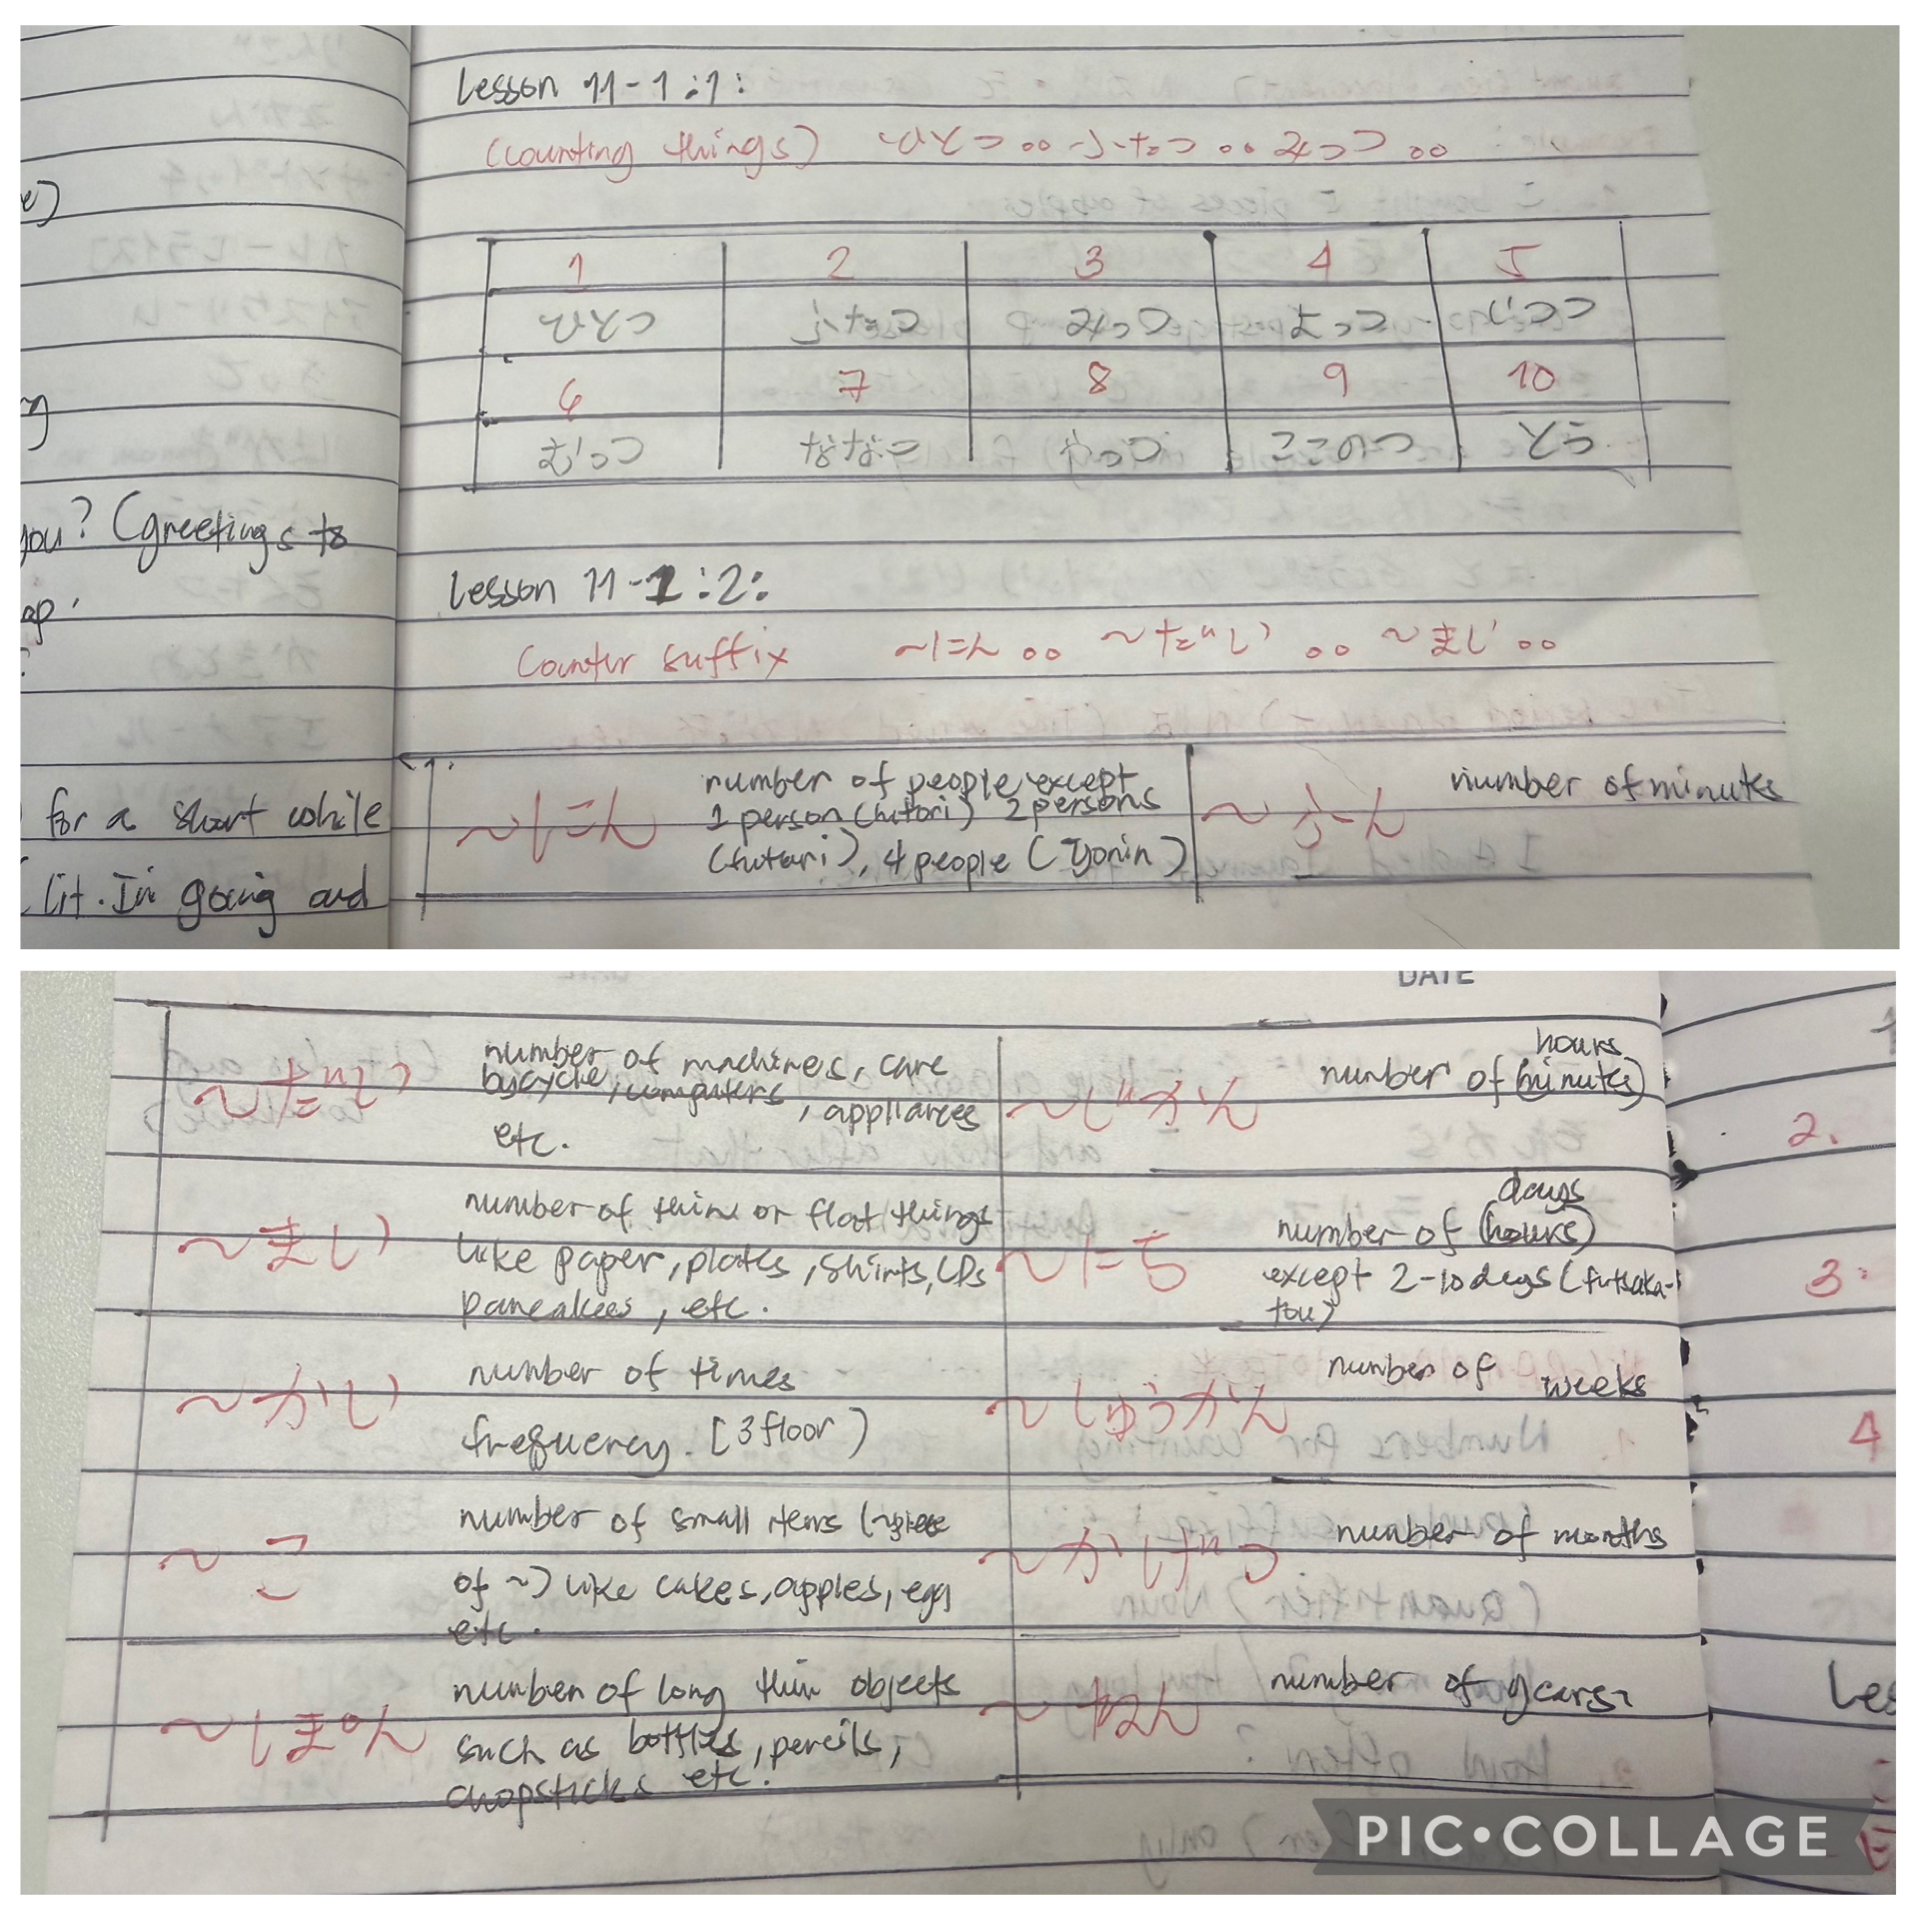 Lesson 11-1:1:
(counting things) ひとつ 。。ふたつ 。。みっつ 。。
1 2 3 4 5
ひとつ ふたつ みっつ よっつ いつつ
6 7 8 9 10
むっつ ななつ やっつ ここのつ とう
you? (greetings to
Lesson 11-1:2:
Counter suffix ~にん 。。 ~だい 。。 ~まい 。。
for a short while
(lit. I'm going and
~にん
number of people except
1 person (hitori) 2 persons
(futari), 4 people (yonin)
~ふん
number of minutes
DATE
~だい
number of machines, care
bycycle, computers, appliances
etc.
~じかん
hours
number of (minutes)
~まい
number of thin or flat things
like paper, plates, shirts, CDs
pancakees, etc.
~にち
days
number of (hours)
except 2-10 days (futsuka-
tou)
~かい
number of times
frequency. [3 floor)
~しゅうかん
number of weeks
~こ
number of small items (~piece
of ~) like cakes, apples, egg
etc.
~かげつ
number of months
~ほん
number of long thin objects
such as bottles, pencils,
chopsticks etc.
~ねん
number of years
2.
3.
4
Les
PIC•COLLAGE